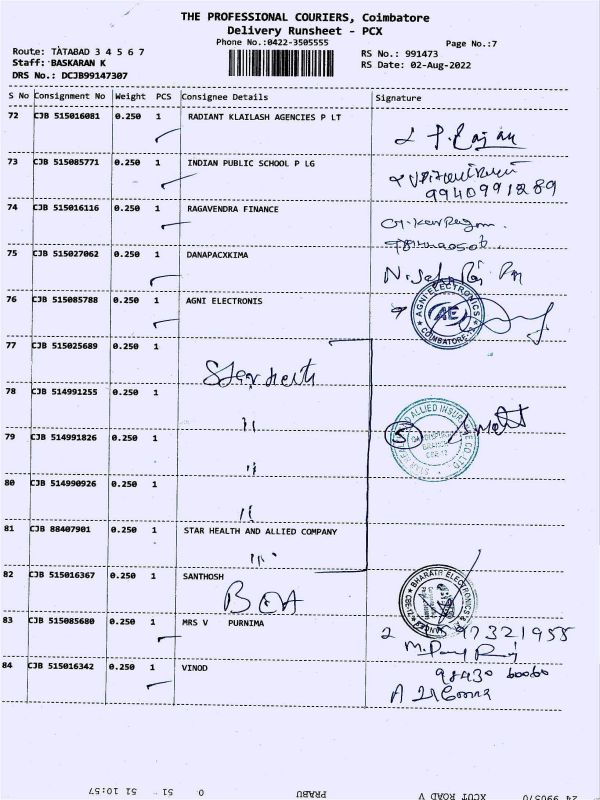 THE PROFESSIONAL COURIERS, Coimbatore
Delivery Runsheet - PCX
Phone No.:0422-3505555
Page No.:7
Route: TATABAD 3 4 5 6 7
RS No.: 991473
Staff: BASKARAN K
RS Date: 02-Aug-2022
DRS No.: DCJB99147307
S No Consignment No Weight PCS Consignee Details Signature
72 CJB 515016081 0.250 1 RADIANT KLAILASH AGENCIES P LT
73 CJB 515085771 0.250 1 INDIAN PUBLIC SCHOOL P LG
9940991289
74 CJB 515016116 0.250 1 RAGAVENDRA FINANCE
75 CJB 515027062 0.250 1 DANAPACXKIMA
76 CJB 515085788 0.250 1 AGNI ELECTRONIS
AGNI ELECTRONICS
AE
COIMBATORE
77 CJB 515025689 0.250 1
Star health
78 CJB 514991255 0.250 1
"
5
79 CJB 514991826 0.250 1
"
80 CJB 514990926 0.250 1
"
81 CJB 88407901 0.250 1 STAR HEALTH AND ALLIED COMPANY
"
82 CJB 515016367 0.250 1 SANTHOSH
BHARATH ELECTRONICS
83 CJB 515085680 0.250 1 MRS V PURNIMA
84 CJB 515016342 0.250 1 VINOD
98430 60060
51 10:57
51
0
PRABU
XCUT ROAD V
24 990570